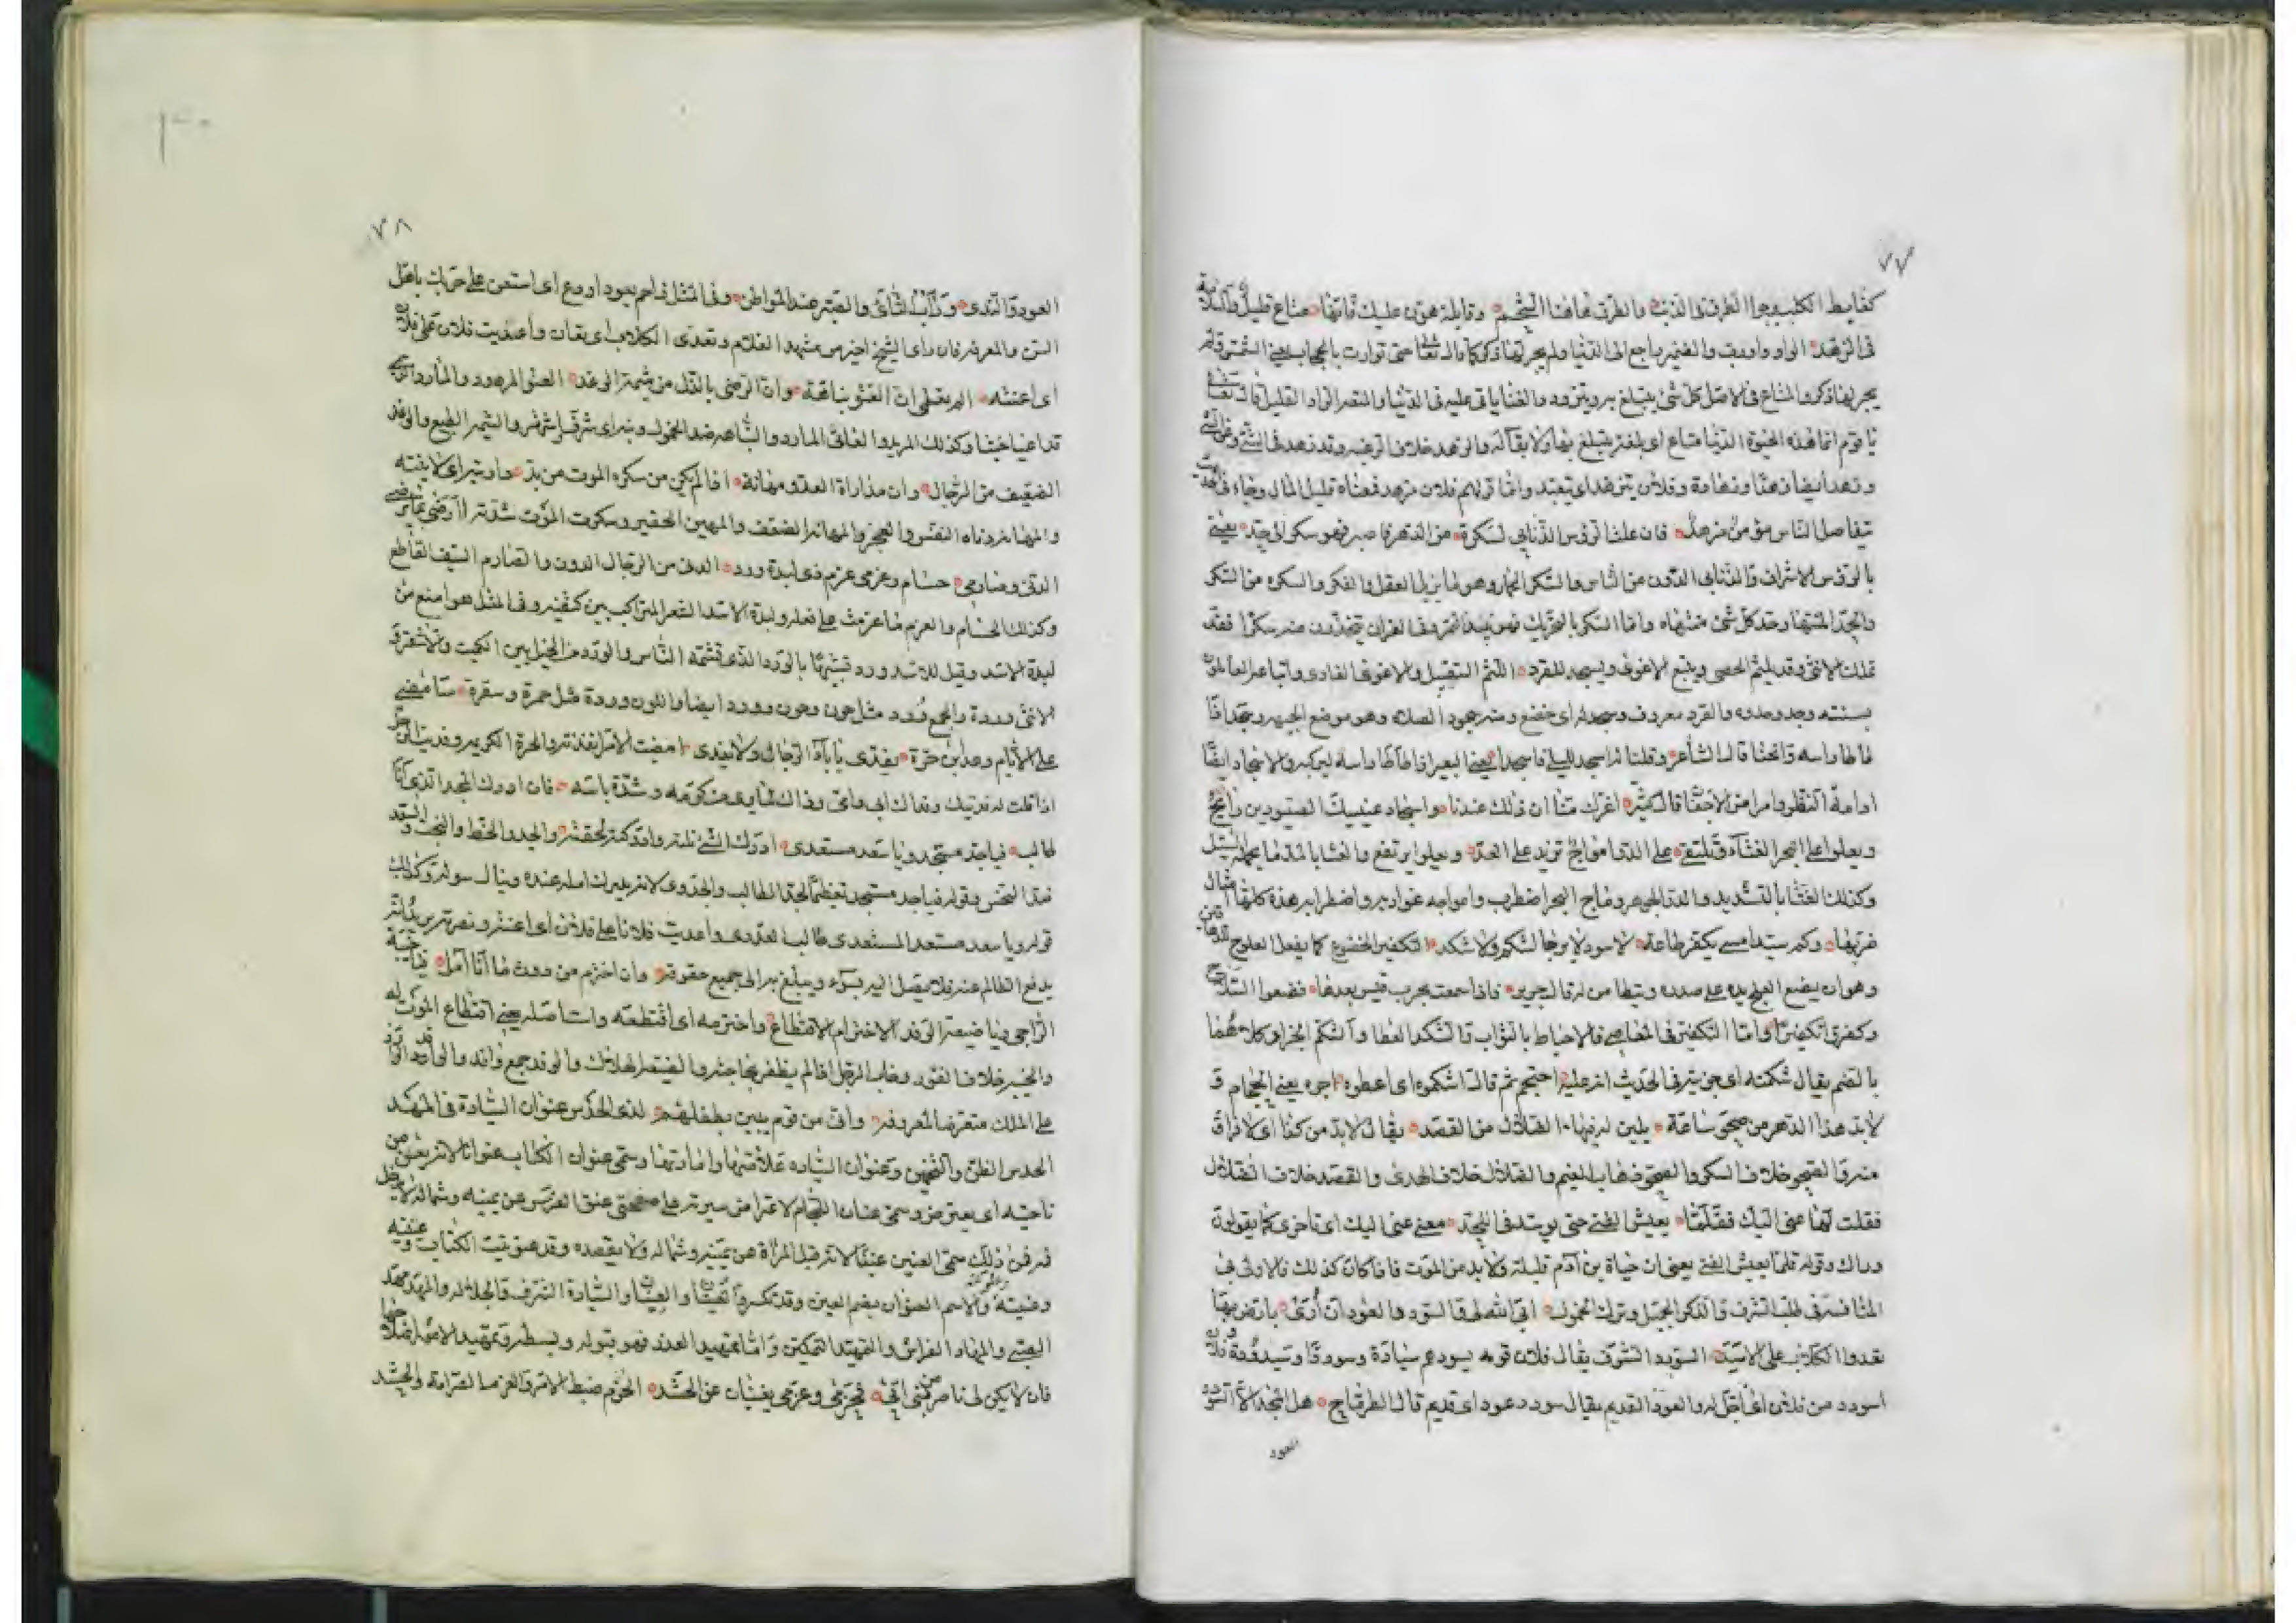 ٧٧
كغابط الكلب يوجوا الطرق فى الذنب والطرق هاهنا الشحم وقايلة هون عليك فانها متاع قليل
فى الزهد الواو واورب والضمير راجع الى الدنيا ولم يجر لها ذكر كما قال تعالى حتى توارت بالحجاب يعنى الشمس ولم
يجر لها ذكر والمتاع فى الاصل كل شئ يتبلغ به ويتزود والفنا ياتى عليه فى الدنيا والنصر الزاد القليل قال تعالى
يا قوم انما هذه الحيوة الدنيا متاع اى بلغة يتبلغ بها ولا بقآ له والزهد خلاف الرغبه وقد زهد فى الشئ وعن الشئ
وزهد ايضا زهدا وزهادة وفلان يتزهد اى يتعبد واما قولهم فلان مزهد فمعناه قليل المال وجاء فى الحديث
افضل الناس مؤمن مزهد فان علت الروس الذنابى لسكرة من الدهر فاصبر فهو سكر الى حد يعنى
بالروس الاشراف والذنابى الدون من الناس والسكر الخمار وهو ما يزيل العقل والفكر والسكره من السكر
والحد المنتهى وحد كل شئ منتهاه واما السكر بالتحريك فهو نبيذ التمر وفى القران تتخذون منه سكرا فقد
تملك الانثى وقد يلثم الحصى ويتبع الاغوى ويسجد للقرد اللثم التقبيل والاغوى الغاوى واتباعه العالمون
بسنته وجد وحدوه والقرد معروف وسجد له اى خضع ومنه سجود الصلاه وهو موضع الجبهه وسجد اذا
طاطا راسه وانحنا قال الشاعر وقلنا له اسجد لليلى فاسجدا يعنى البعير اذا طاطا راسه ليركب والاسجاد ايضا
ادامة النظر وامراض الاجفان قال كثير اغرك منا ان ذلك عندنا واسجاد عينيك الصيودين رابح
ويعلوا على البحر الغثآء ويلتقى على الدر امواج تزيد على العد ويعلوا يرتفع والغثا بالمد ما يحمله السيل
وكذلك الغثا بالتشديد والدر الجوهر وماج البحر اضطرب وامواجه غواربه واضطرابه هذه كلها امثال
ضربها وكم سيد امسى يكفر طاعة لاسود لا يرجا لشكم ولا شكد التكفير الخضوع كما يفعل العلوج
وهو ان يضع العلج يده على صدره ويتطامن له قال جرير فاذا سمعت بحرب قيس بعدها فضعوا السلاح
وكفرى تكفيرا واما التكفير فى المعاصى فالاحباط بالثواب والشكد العطا والشكم الجزاء كلاهما
بالضم يقال شكمته اى جزيته وفى الحديث انه عليه احتجم ثم قال اشكموه اى اعطوه اجره يعنى الحجام و
لابد هذا الدهر من صحو ساعة يلين له فيها الضلال من القصد يقال لابد من كذا اى لا فراق
منه والصحو خلاف السكر والصحو ذهاب الغيم والضلال خلاف الهدى والقصد خلاف الضلال
فقلت لها عنى اليك فقلما يعيش الفتى حتى يوسد فى اللحد معنى عنى اليك اى تاخرى كما يقولون
وراك وقوله قلما يعيش الفتى يعنى ان حياة بن آدم قليلة ولابد من الموت فاذا كان كذلك فالاولى فى
المنافسة فى طلب الشرف والذكر الجميل وترك الخمول ابى الله لى والسودد العود ان ارى بارض بها
تعدوا الكلاب على الاسد السودد الشرف يقال فلان قومه يسودهم سيادة وسوددا وسيدودة
اسود من فلان اى اجل له والعود القديم يقال سودد عود اى قديم قال الطرماح هل المجد الا السودد
العود
٧٨
العود والندى ورأب الثأى والصبر عند المواطن وفى المثل زاحم بعود او دع اى استعن على حربك باهل
السن والمعرفة فان راى الشيخ خير من مشهد الغلام وتعدى الكلاب اى
اى اعنته الم يعلمى ان العتو نباهة وان الرضى بالذل من شيمة الوغد العتو المرود والمارد
وكذلك المريد العاتى المارد والنباهه ضد الخمول ونبه اى شرف والشيمه الطبع والوغد
الضعيف من الرجال وان مداراة العدو مهانة اذا لم يكن من سكرة الموت من بد
والمهانه دناه النفس والعجز والمهانه الضعف والمهين الحقير وسكرة الموت شدته أارضى بما يرضى
الدنى وصارمى حسام وعزمى عزم ذى لبدة ورد الدنى من الرجال الدون والصارم السيف القاطع
وكذلك الحسام والعزم ما عزمت على فعله ولبدة الاسد الشعر المتراكب بين كتفيه وفى المثل هو امنع من
لبدة الاسد وقيل للاسد ورد تشبيها بالورد الذى تشمه الناس والورد من الخيل بين الكميت والاشقر و
الانثى وردة والجمع ورد مثل جون وجون وورد ايضا واللون وردة مثل حمرة وسقرة سامضى
على الايام وعد بن حرة يفدى بابآء الرجال ولا يفدى امضيت الامر انفذته والحرة الكريمه وفديت
اذا قلت له فديتك وفداك ابى وامى وذاك لما يرى من كرمه وشدة باسه فان ادرك المجد الذى انا
طالب فيا جد مستجد ويا سعد مستعدى ادرك الشئ نلته وادركته لحقته والجد والحظ والبخت والسعد
ضد النحس وقوله فيا جد مستجد تعظيما لجد الطالب والجدوى لانه يدرك امله عنده وينال سوله وكذلك
قوله ويا سعد مستعد المستعدى طالب العدوى واعديت فلانا على فلان اى اعنته ونصرته
يدفع الظالم عنه فلا يصل اليه بسوء ويبلغ به الى جميع حقوقه وان اخترم من دون ما انا آمل فيا خيبة
الراجى ويا ضيعة الوفد الاخترام الاقتطاع واخترمه اى اقتطعه واستاصله يعنى اقتطاع الموت له
والخيبه خلاف الفوز وخاب الرجل اذا لم يظفر بحاجته والضيعه الهلاك والوفد جمع وافد والوافد
على الملك متعرضا لمعروفه وانى من قوم يبين بطفلهم لذى الحدس عنوان السيادة فى المهد
الحدس الظن والتخمين وعنوان السياده علامتها وامارتها وسمى عنوان الكتاب عنوانا لانه يعن من
ناحيته اى يعترض وسمى عنان اللجام لاعتراض سيره على صفحتى عنق الفرس عن يمينه وشماله
ذلك سمى العنين عنينا لانه قبل المرأة عن يمينه وشماله ولا يقصده وقد عنونت الكتاب وعنيته
وعنيته والاسم العنوان بضم العين وقد تكسر والسيادة الشرف والجلاله والمهد مهد
الصبى والمهاد الفراش والتمهيد التمكين واما تمهيد العذر فهو قبوله وبسطه وتمهيد الامور اصلاحها
فان لا يكن لى ناصر من بنى ابى فحزمى وعزمى يغنيان عن الحشد الحزم ضبط الامر والعزم الصرامة والحشد